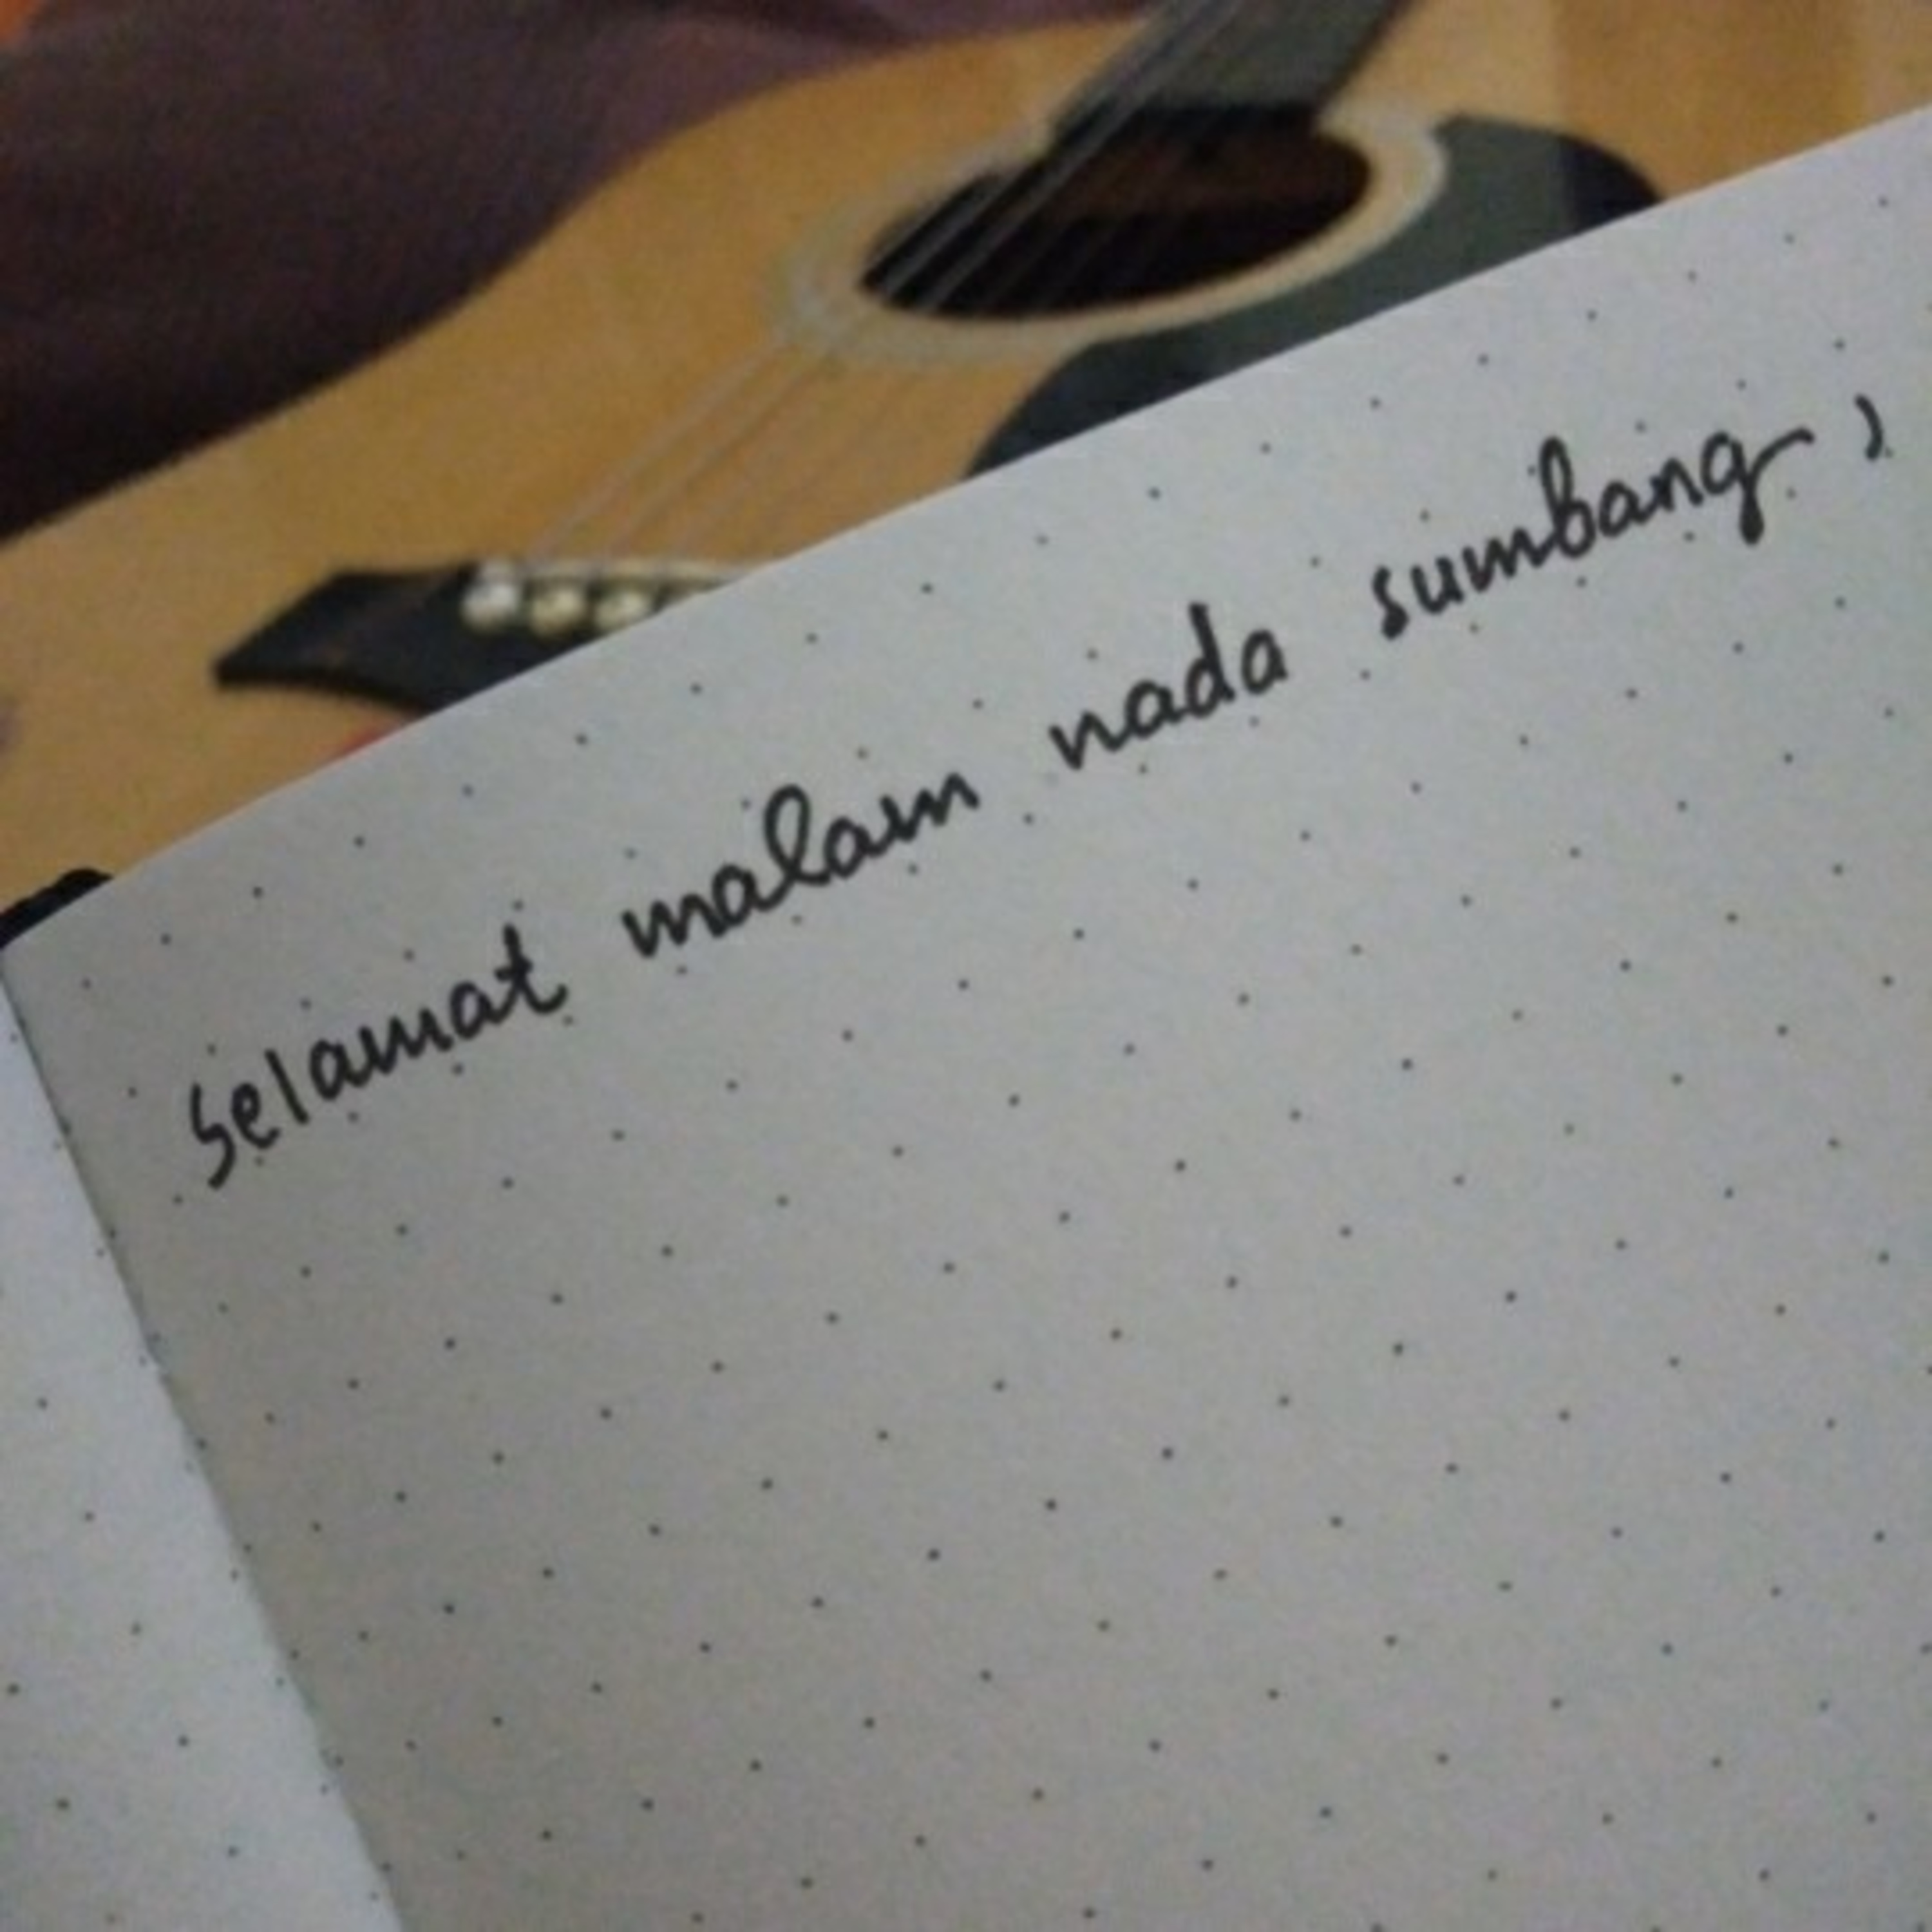 Selamat malam nada sumbang,